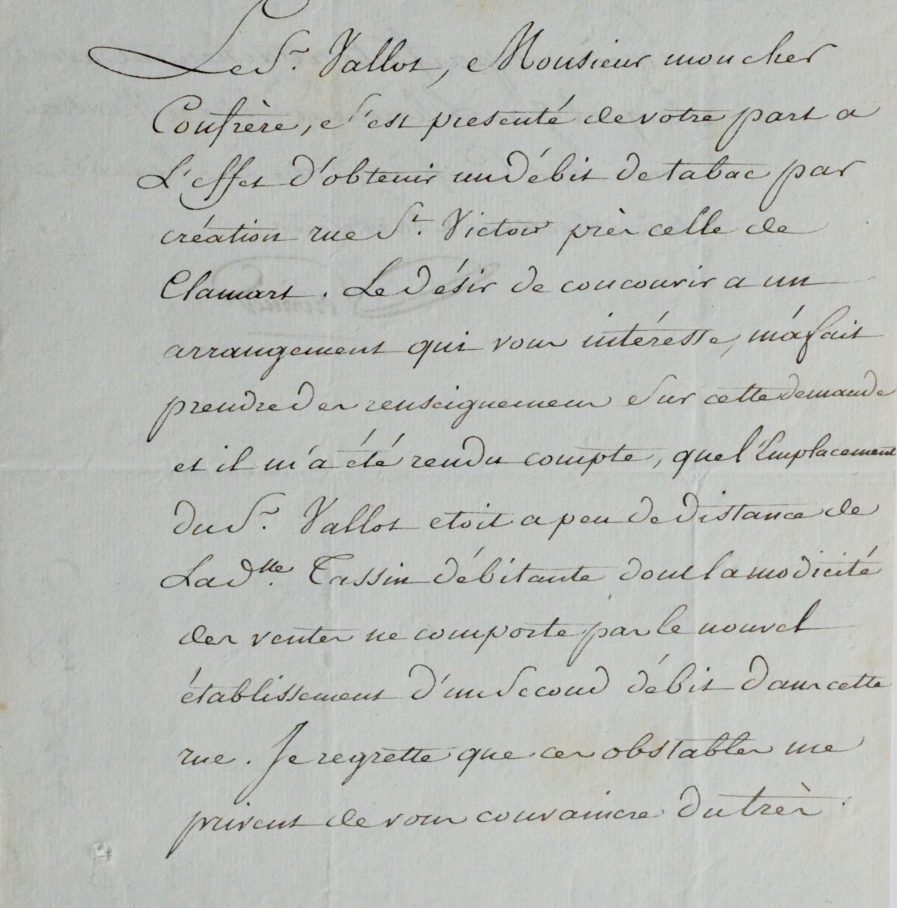 Le Sr. Vallot, Monsieur mon cher
Confrère, s'est presenté de votre part a
L'effet d'obtenir un débit de tabac par
création rue St. Victor près celle de
Clamart. Le désir de concourir a un
arrangement qui vous intéresse, m'a fait
prendre des renseignemens Sur cette demande
et il m'a été rendu compte, que l'Emplacement
du Sr. Vallot etoit a peu de distance de
La dlle. Tassin débitante dont la modicité
des ventes ne comporte pas le nouvel
établissement d'un Second débit dans cette
rue. Je regrette que ces obstables me
privent de vous convaincre du très